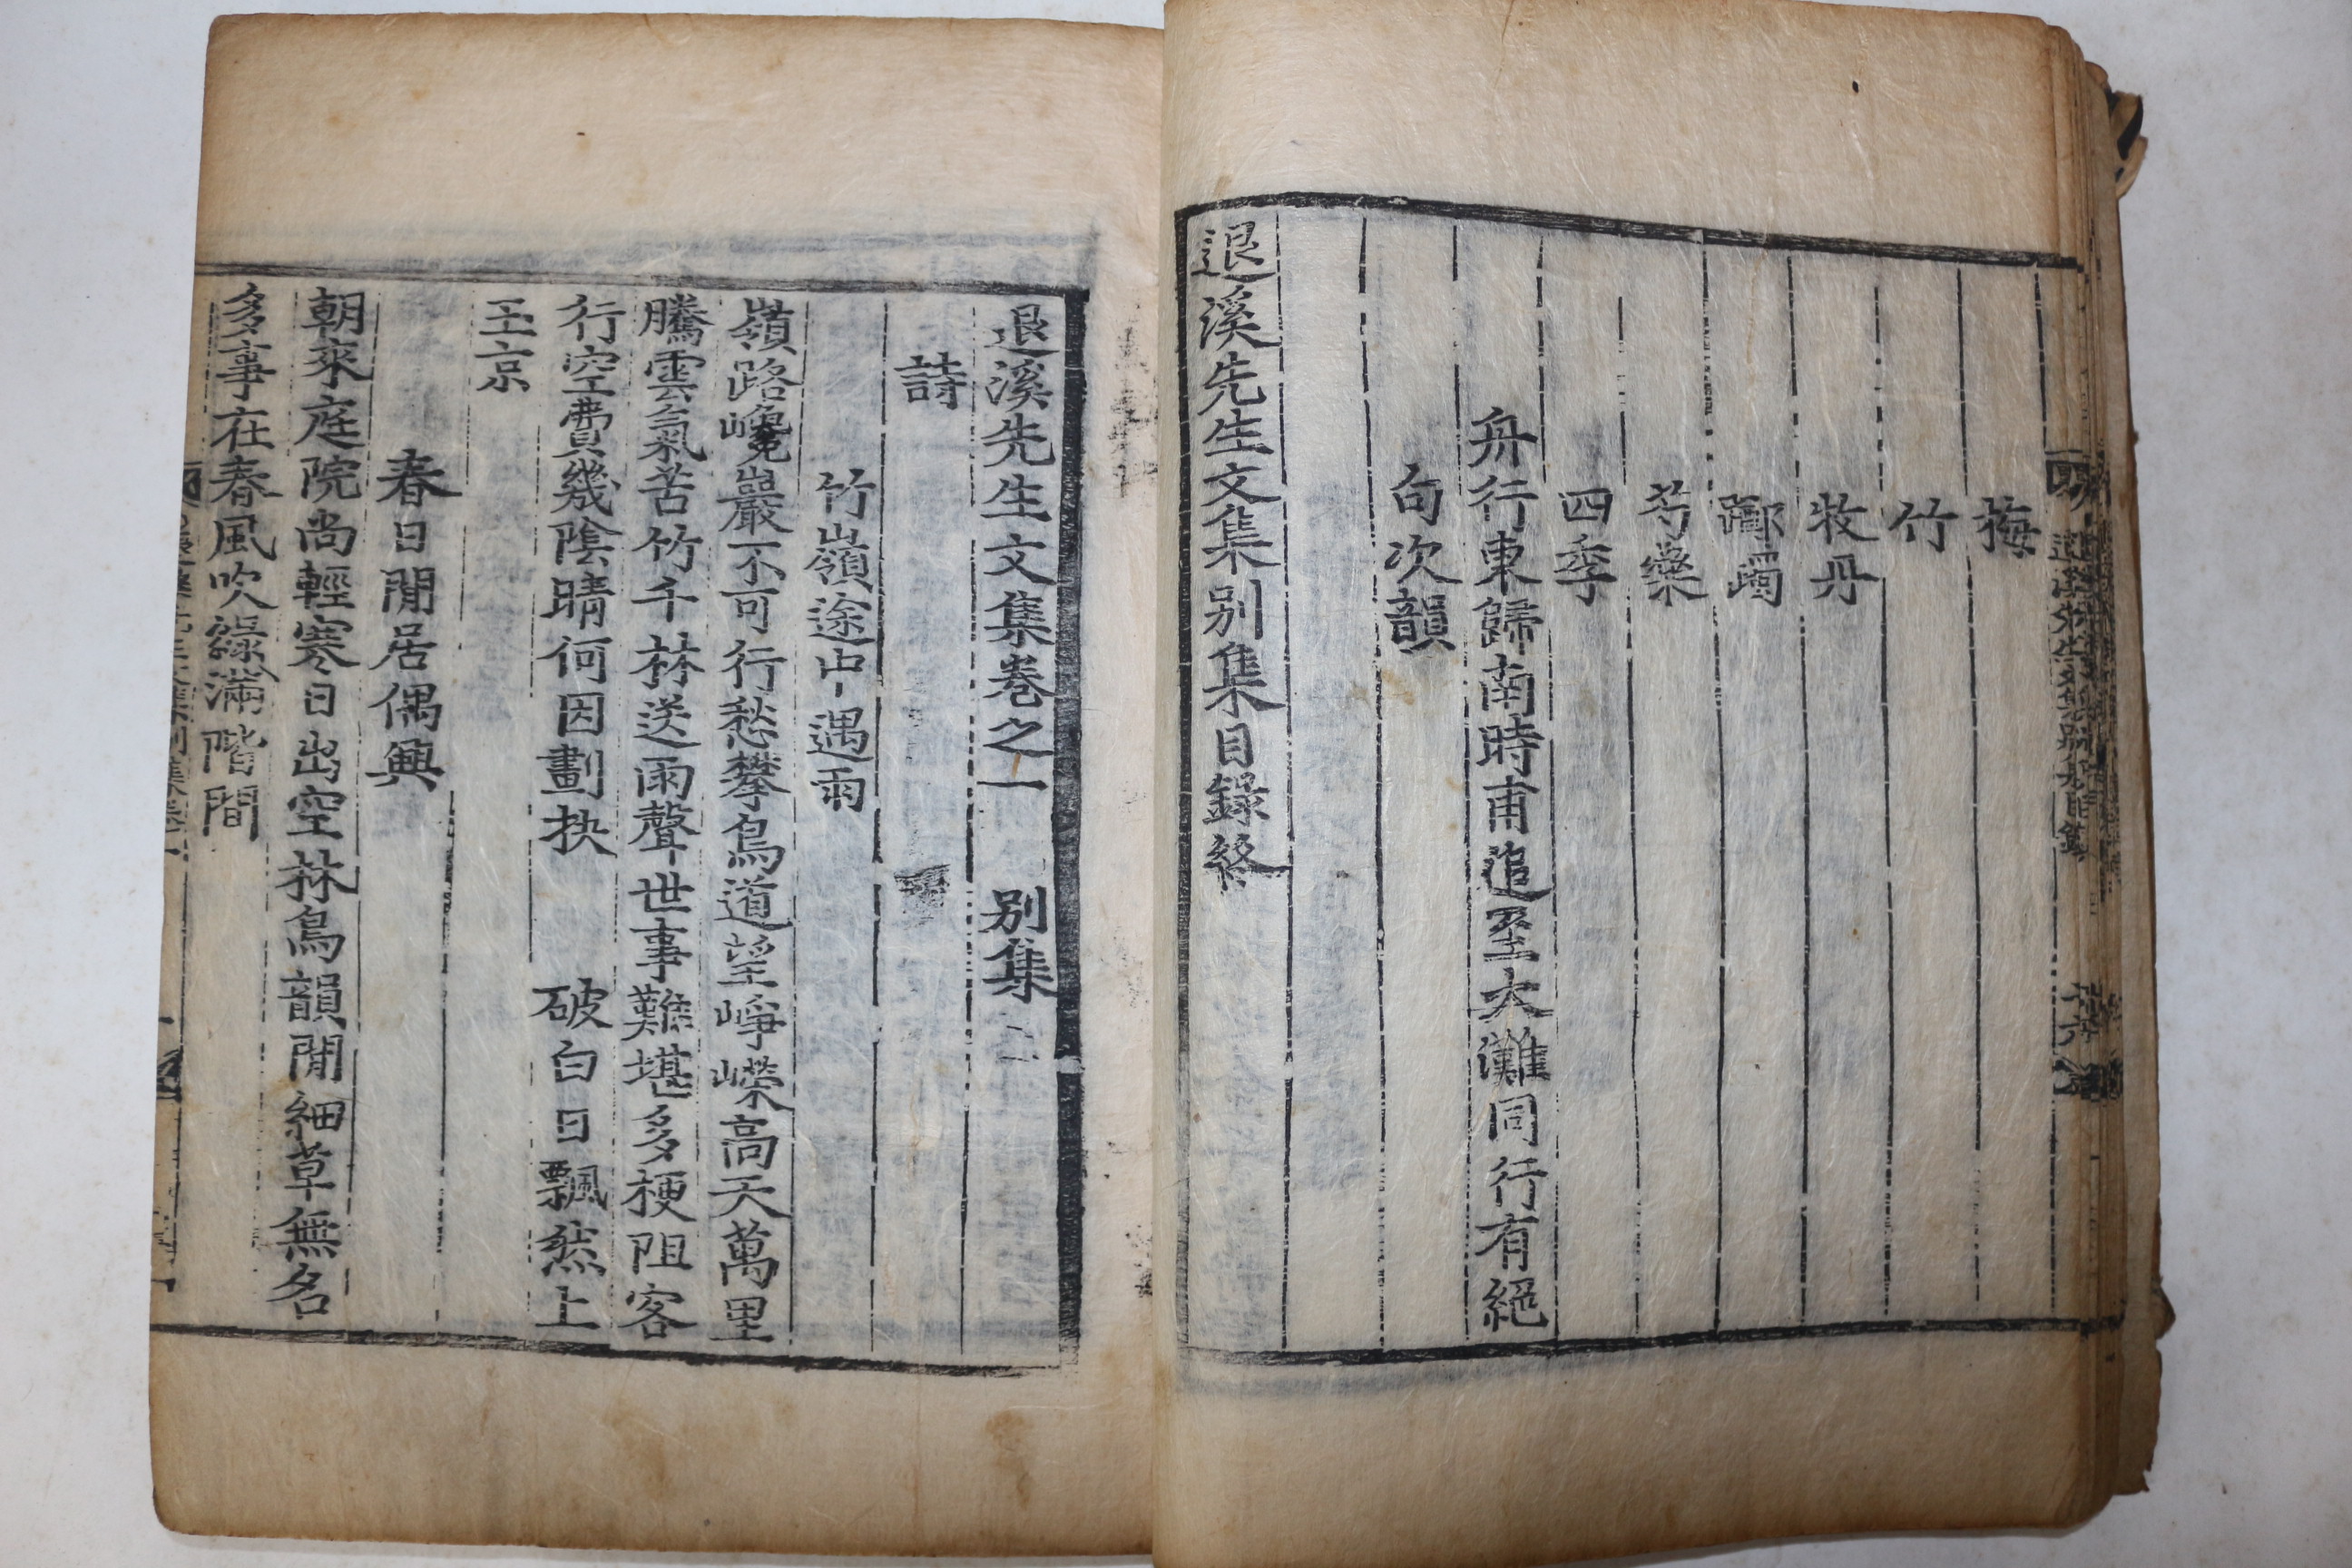 梅
竹
牧丹
躑躅
芍藥
四季
舟行東歸南時甫追至大灘同行有絕
句次韻
退溪先生文集別集目錄終
退溪先生文集卷之一 別集
詩
竹嶺途中遇雨
嶺路巉巖不可行愁攀鳥道望崢嶸高天萬里
騰雲氣苦竹千林送雨聲世事難堪多梗阻客
行空費幾陰晴何因劃抉 破白日飄然上
玉京
春日閒居偶興
朝來庭院尚輕寒日出空林鳥韻閒細草無名
多事在春風吹綠滿階間